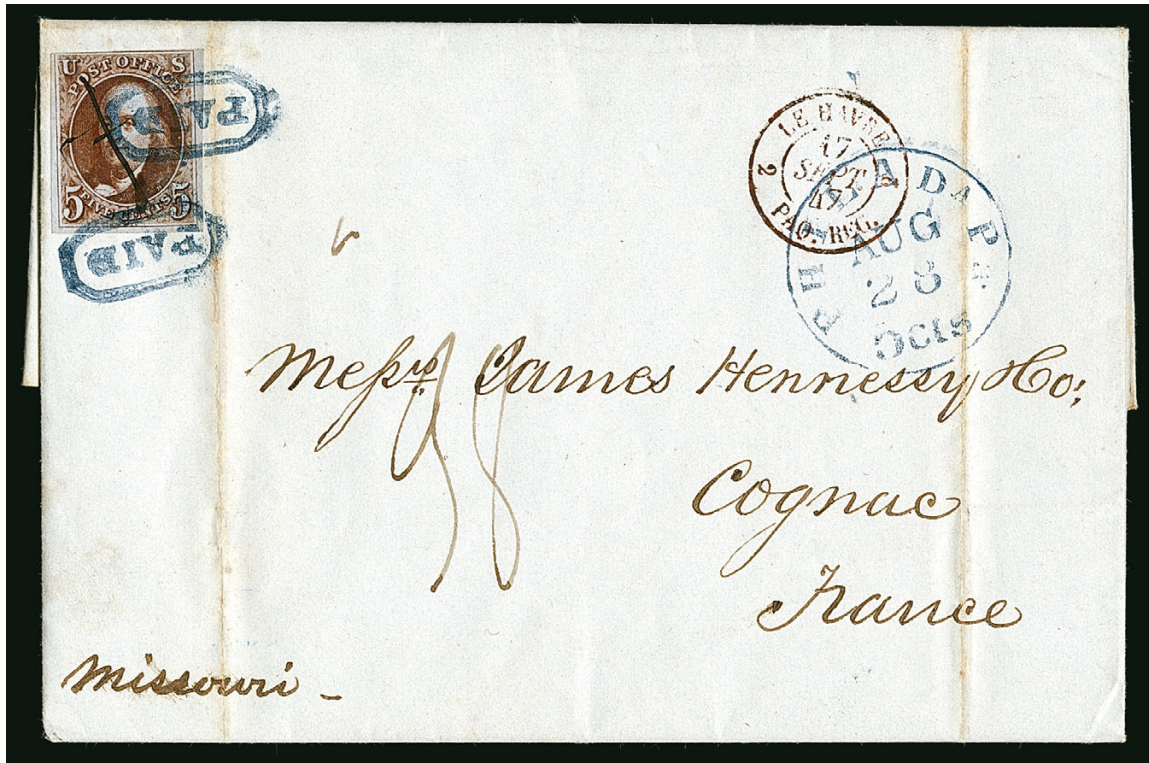 U S
POST OFFICE
5 FIVE CENTS 5
PAID
PAID
LE HAVRE
17
SEPT
47
2 2
PAQ. REG.
PHILADA Pa.
AUG
28
5cts
38
Messrs. James Hennessy & Co:
Cognac
France
Missouri -